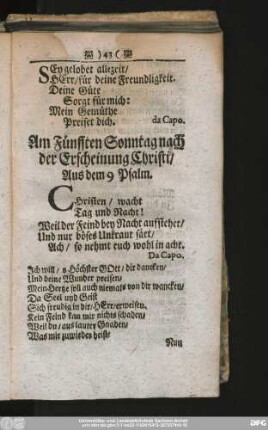 ) 43 (
SEy gelobet allezeit/
HErr/ für deine Freundligkeit.
Deine Güte
Sorgt für mich:
Mein Gemüthe
Preiset dich. da Capo.
Am Fünfften Sonntag nach
der Erscheinung Christi/
Aus dem 9 Psalm.
CHristen/ wacht
Tag und Nacht!
Weil der Feind bey Nacht auffstehet/
Und nur böses Unkraut säet/
Ach/ so nehmt euch wohl in acht.
Da Capo.
Ich will/ o Höchster GOtt/ dir dancken/
Und deine Wunder preisen/
Mein Hertze soll auch niemals von dir wancken/
Da Seel und Geist
Sich freudig in dir/ HErr/ erweisen.
Kein Feind kan mir nichts schaden/
Weil du/ aus lauter Gnaden/
Was mir zuwieder heist/
Nun